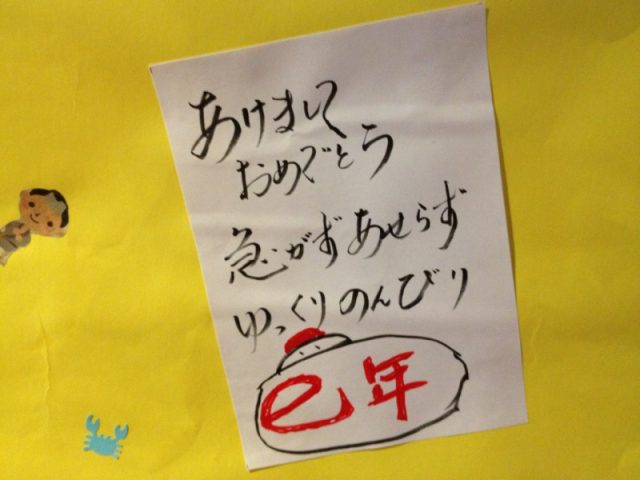 あけまして
おめでとう
急がずあせらず
ゆっくりのんびり
巳年